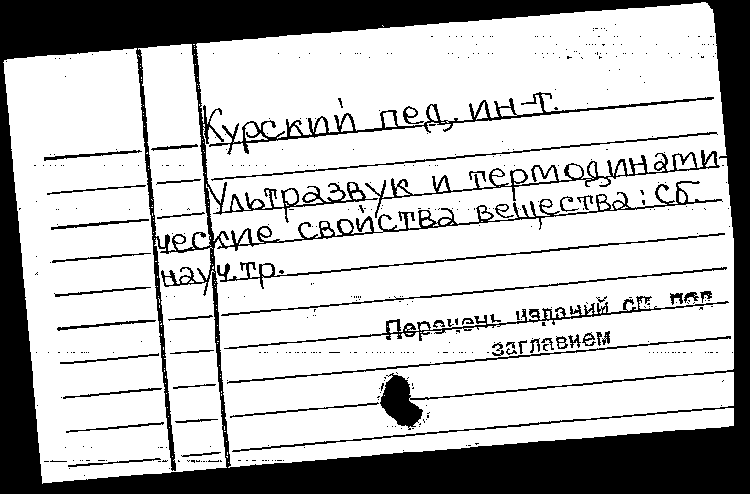 Курский пед. ин-т.
Ультразвук и термодинами-
ческие свойства вещества: Сб.
науч. тр.
Перечень изданий см. под
заглавием